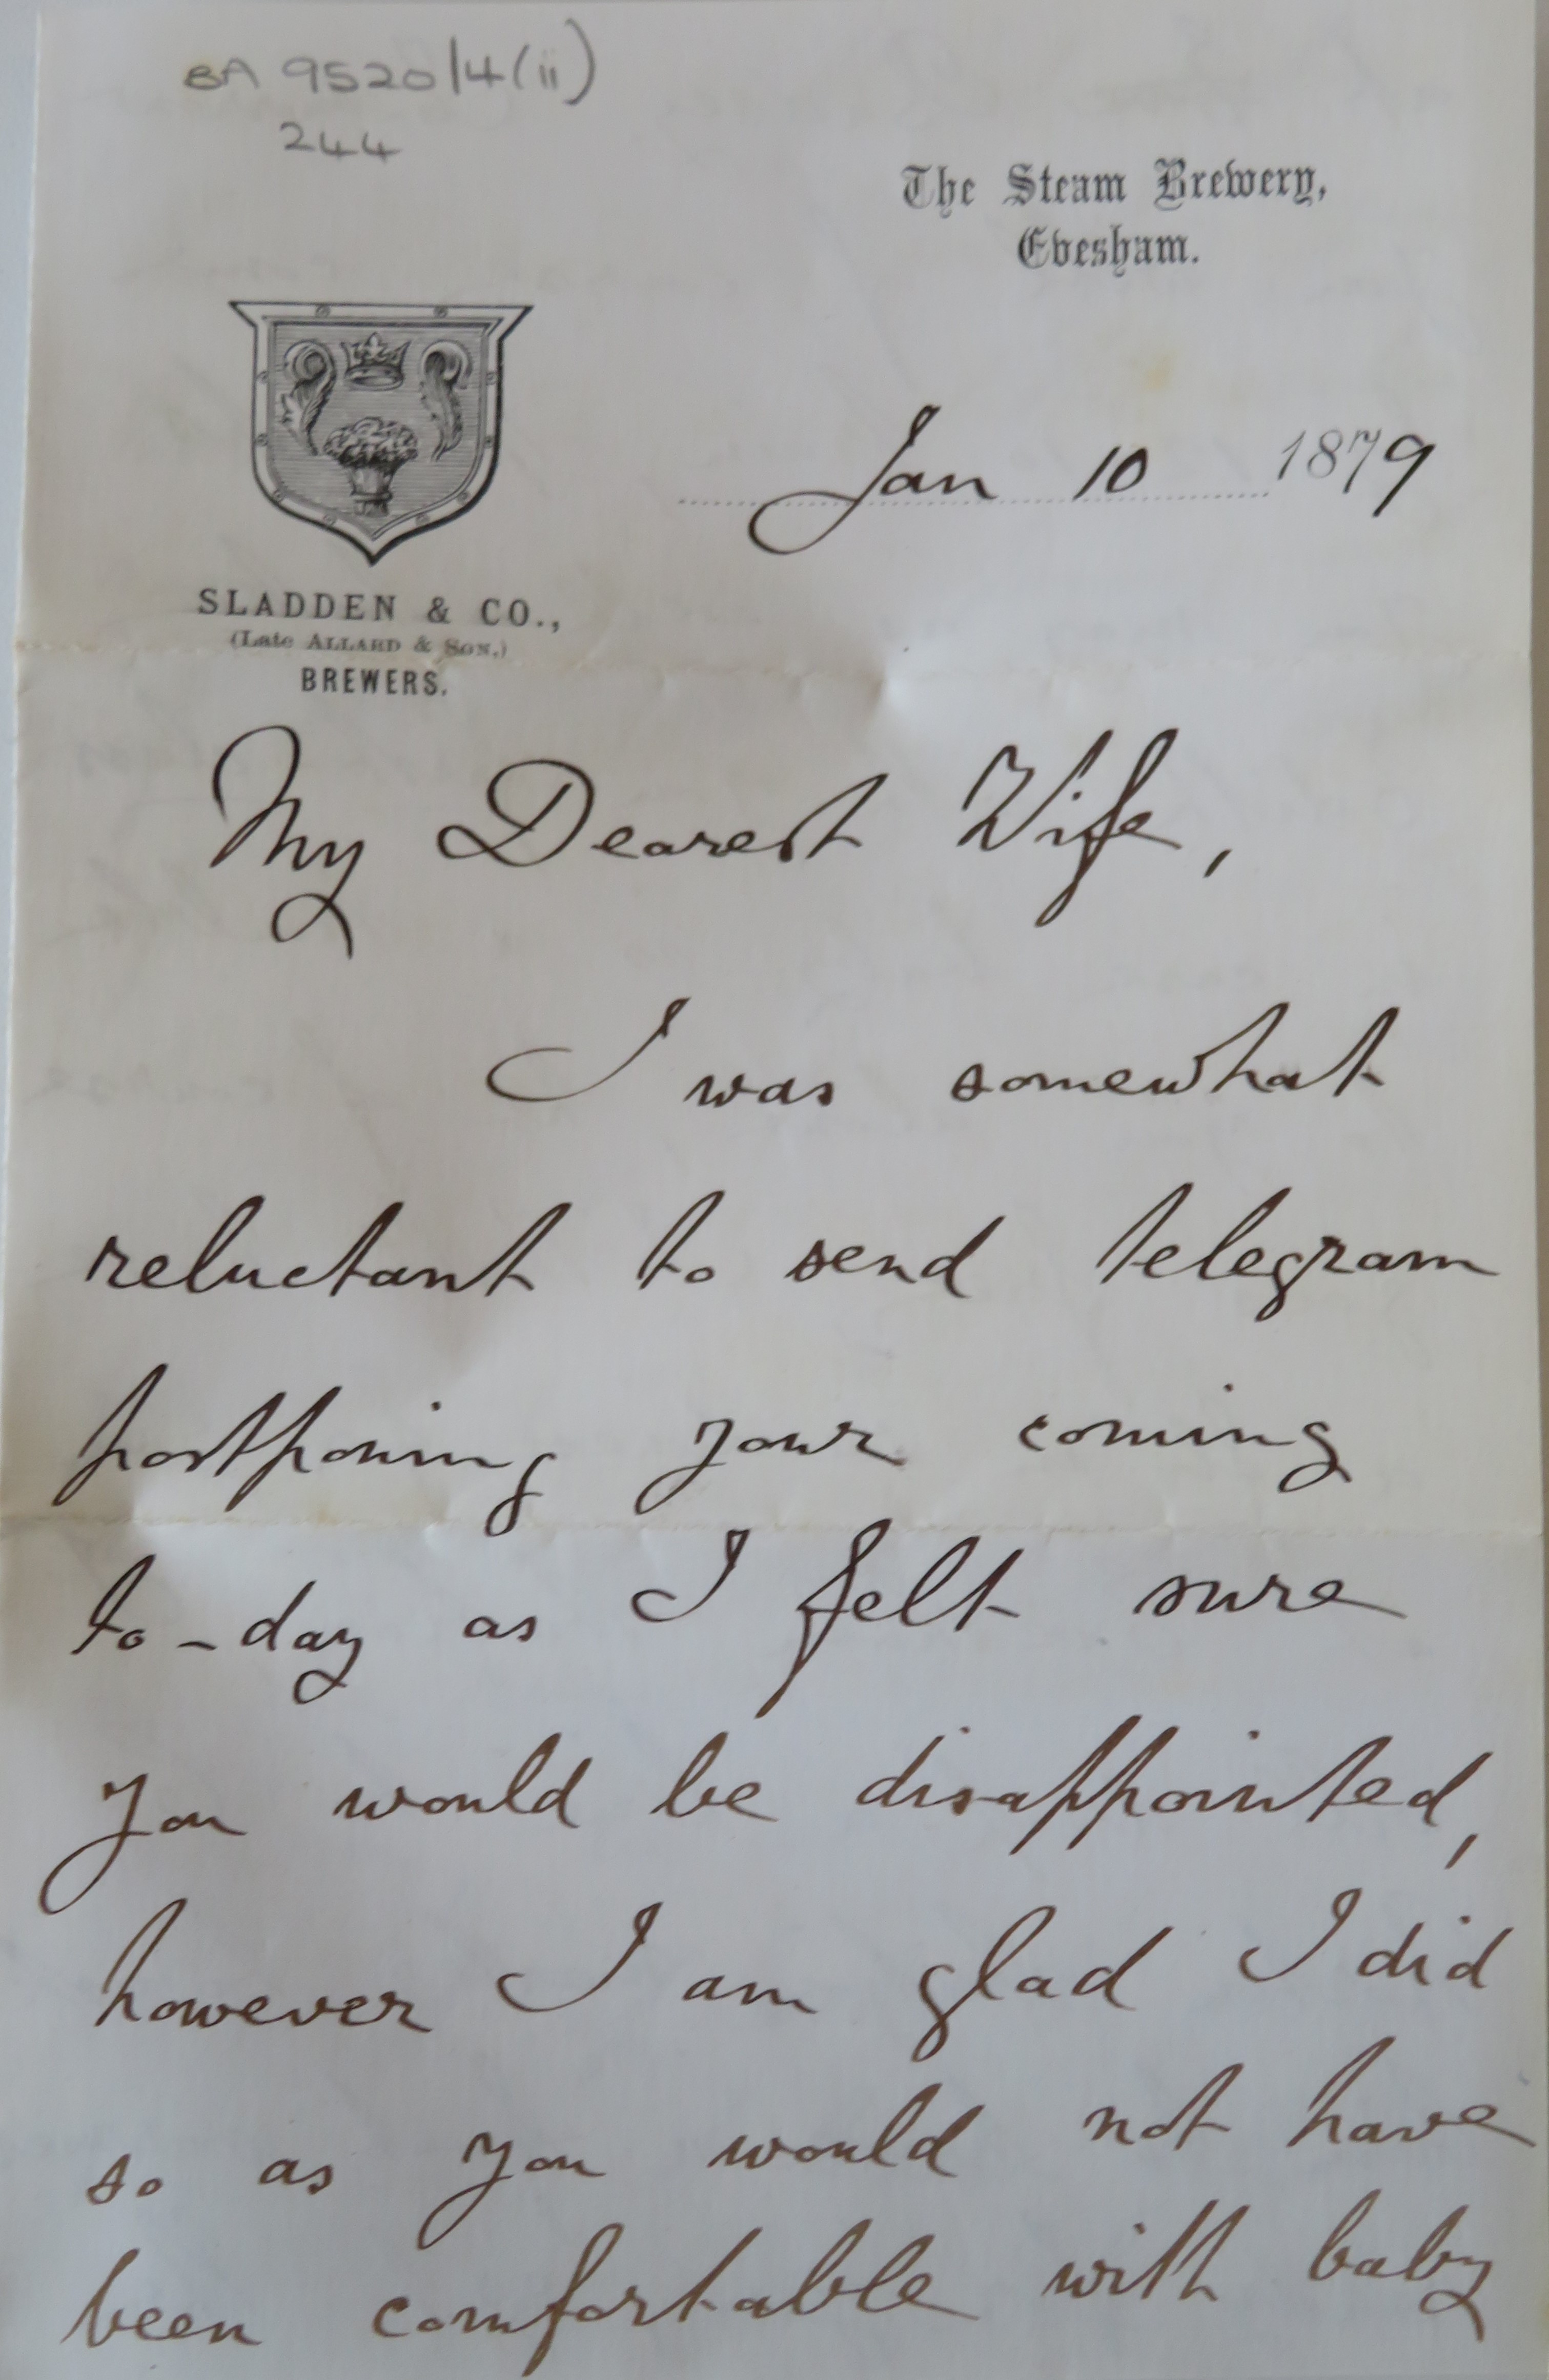 BA 9520/4(ii)
244
The Steam Brewery,
Evesham.
Jan 10 1879
SLADDEN & CO.,
(Late ALLARD & SON,)
BREWERS.
My Dearest Wife,
I was somewhat
reluctant to send telegram
postponing your coming
to-day as I felt sure
you would be disappointed,
however I am glad I did
so as you would not have
been comfortable with baby